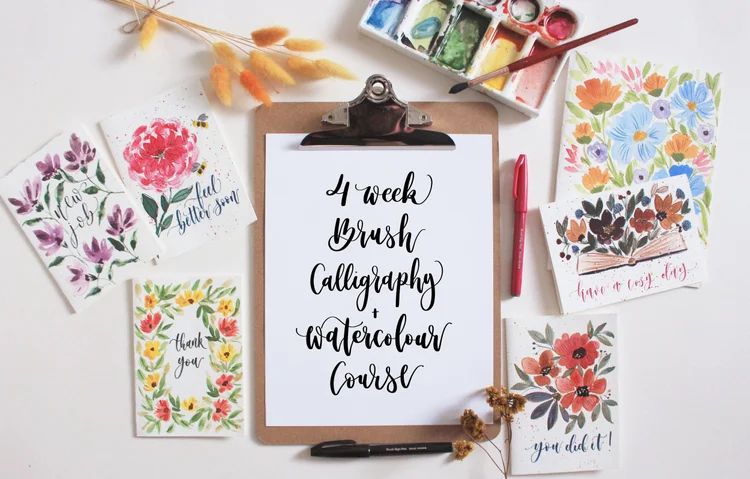 4 week
Brush
Calligraphy
+
watercolour
Course
new
job
feel
better soon
thank
you
have a cosy day
you did it!